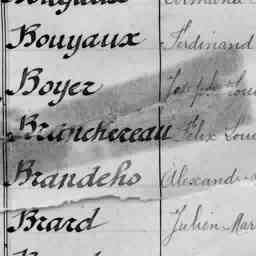 Bouyaux Ferdinand
Boyer Joseph Loui
Branchereau Félix Loui
Brandeho Alexand
Brard Julien Mar